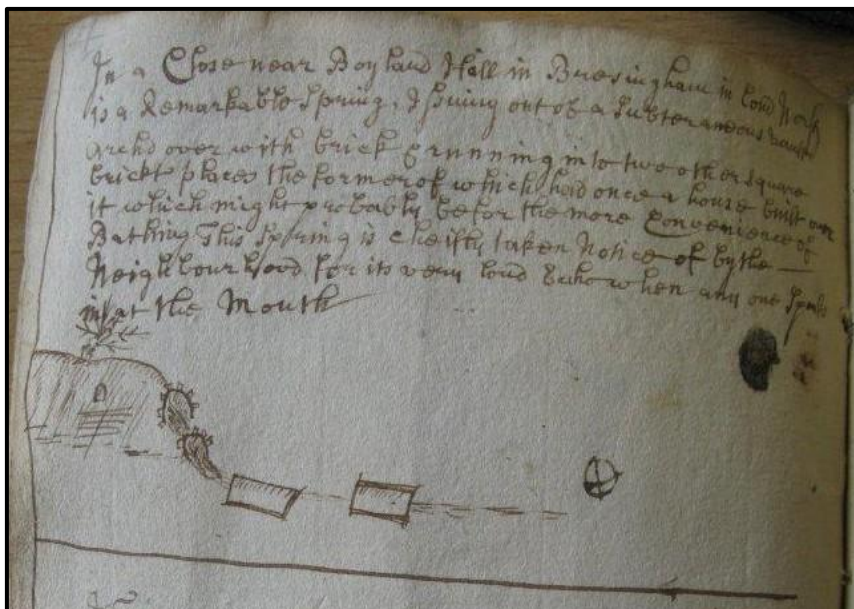 In a Close near Boyland Hall in Bresingham in Com Norf
is a Remarkable Spring, Issuing out of a Subteraneous vault
archd over with brick & running into two other square
brickt places the former of which had once a house built over
it which might probably be for the more Convenience of
Bathing This Spring is cheifly taken Notice of by the —
Neighbourhood for its very loud Echo when any one Speaks
in at the Mouth